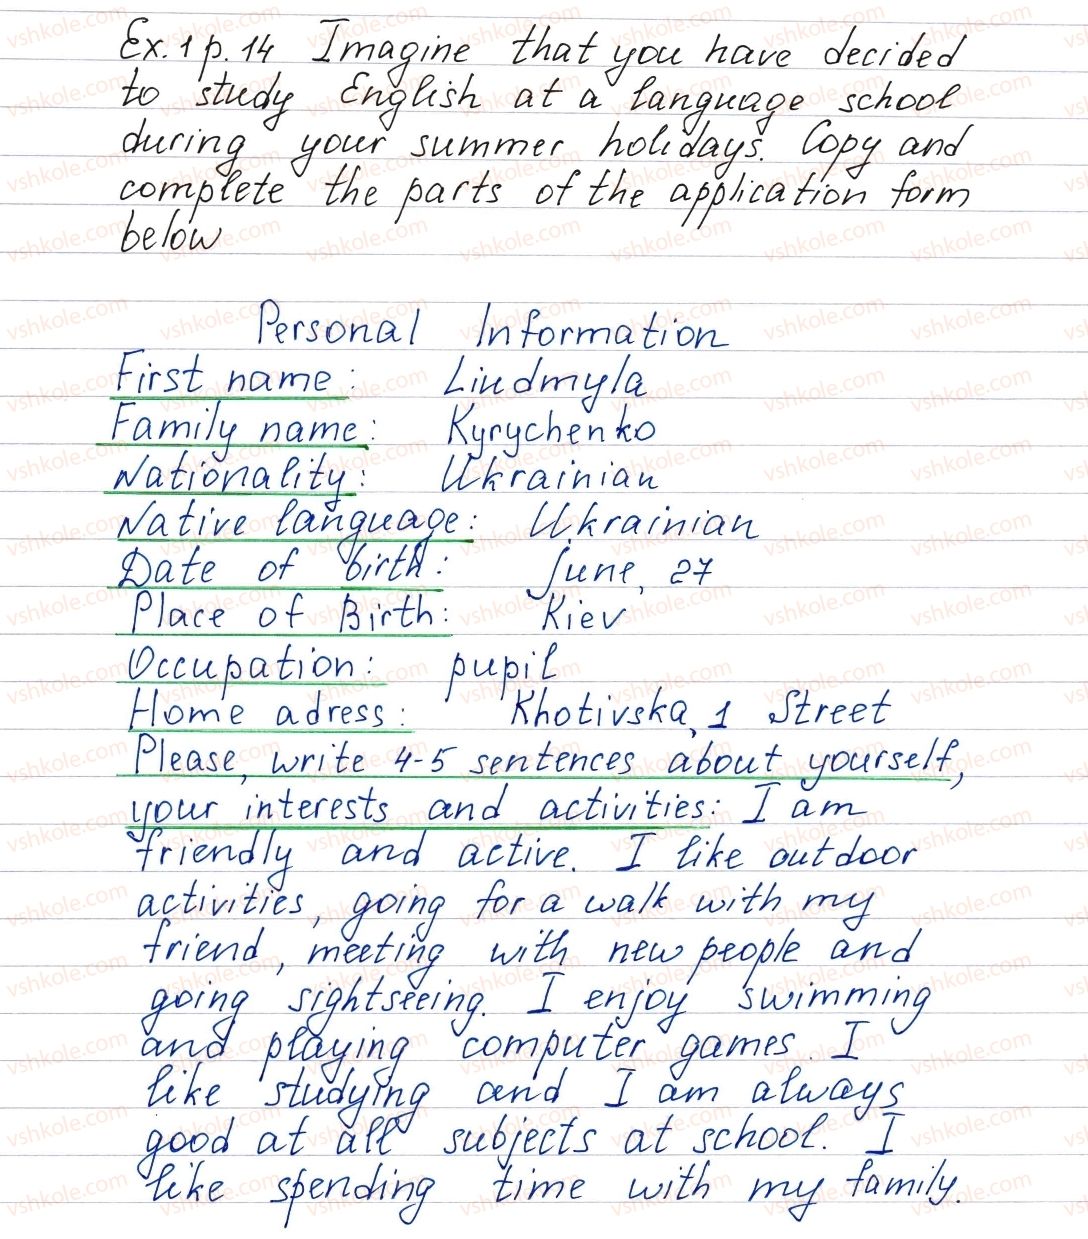 Ex. 1 p. 14 Imagine that you have decided
to study English at a language school
during your summer holidays. Copy and
complete the parts of the application form
below
Personal Information
First name: Liudmyla
Family name: Kyrychenko
Nationality: Ukrainian
Native language: Ukrainian
Date of birth: June, 27
Place of Birth: Kiev
Occupation: pupil
Home adress: Khotivska, 1 Street
Please, write 4-5 sentences about yourself,
your interests and activities: I am
friendly and active. I like outdoor
activities, going for a walk with my
friend, meeting with new people and
going sightseeing. I enjoy swimming
and playing computer games. I
like studying and I am always
good at all subjects at school. I
like spending time with my family.